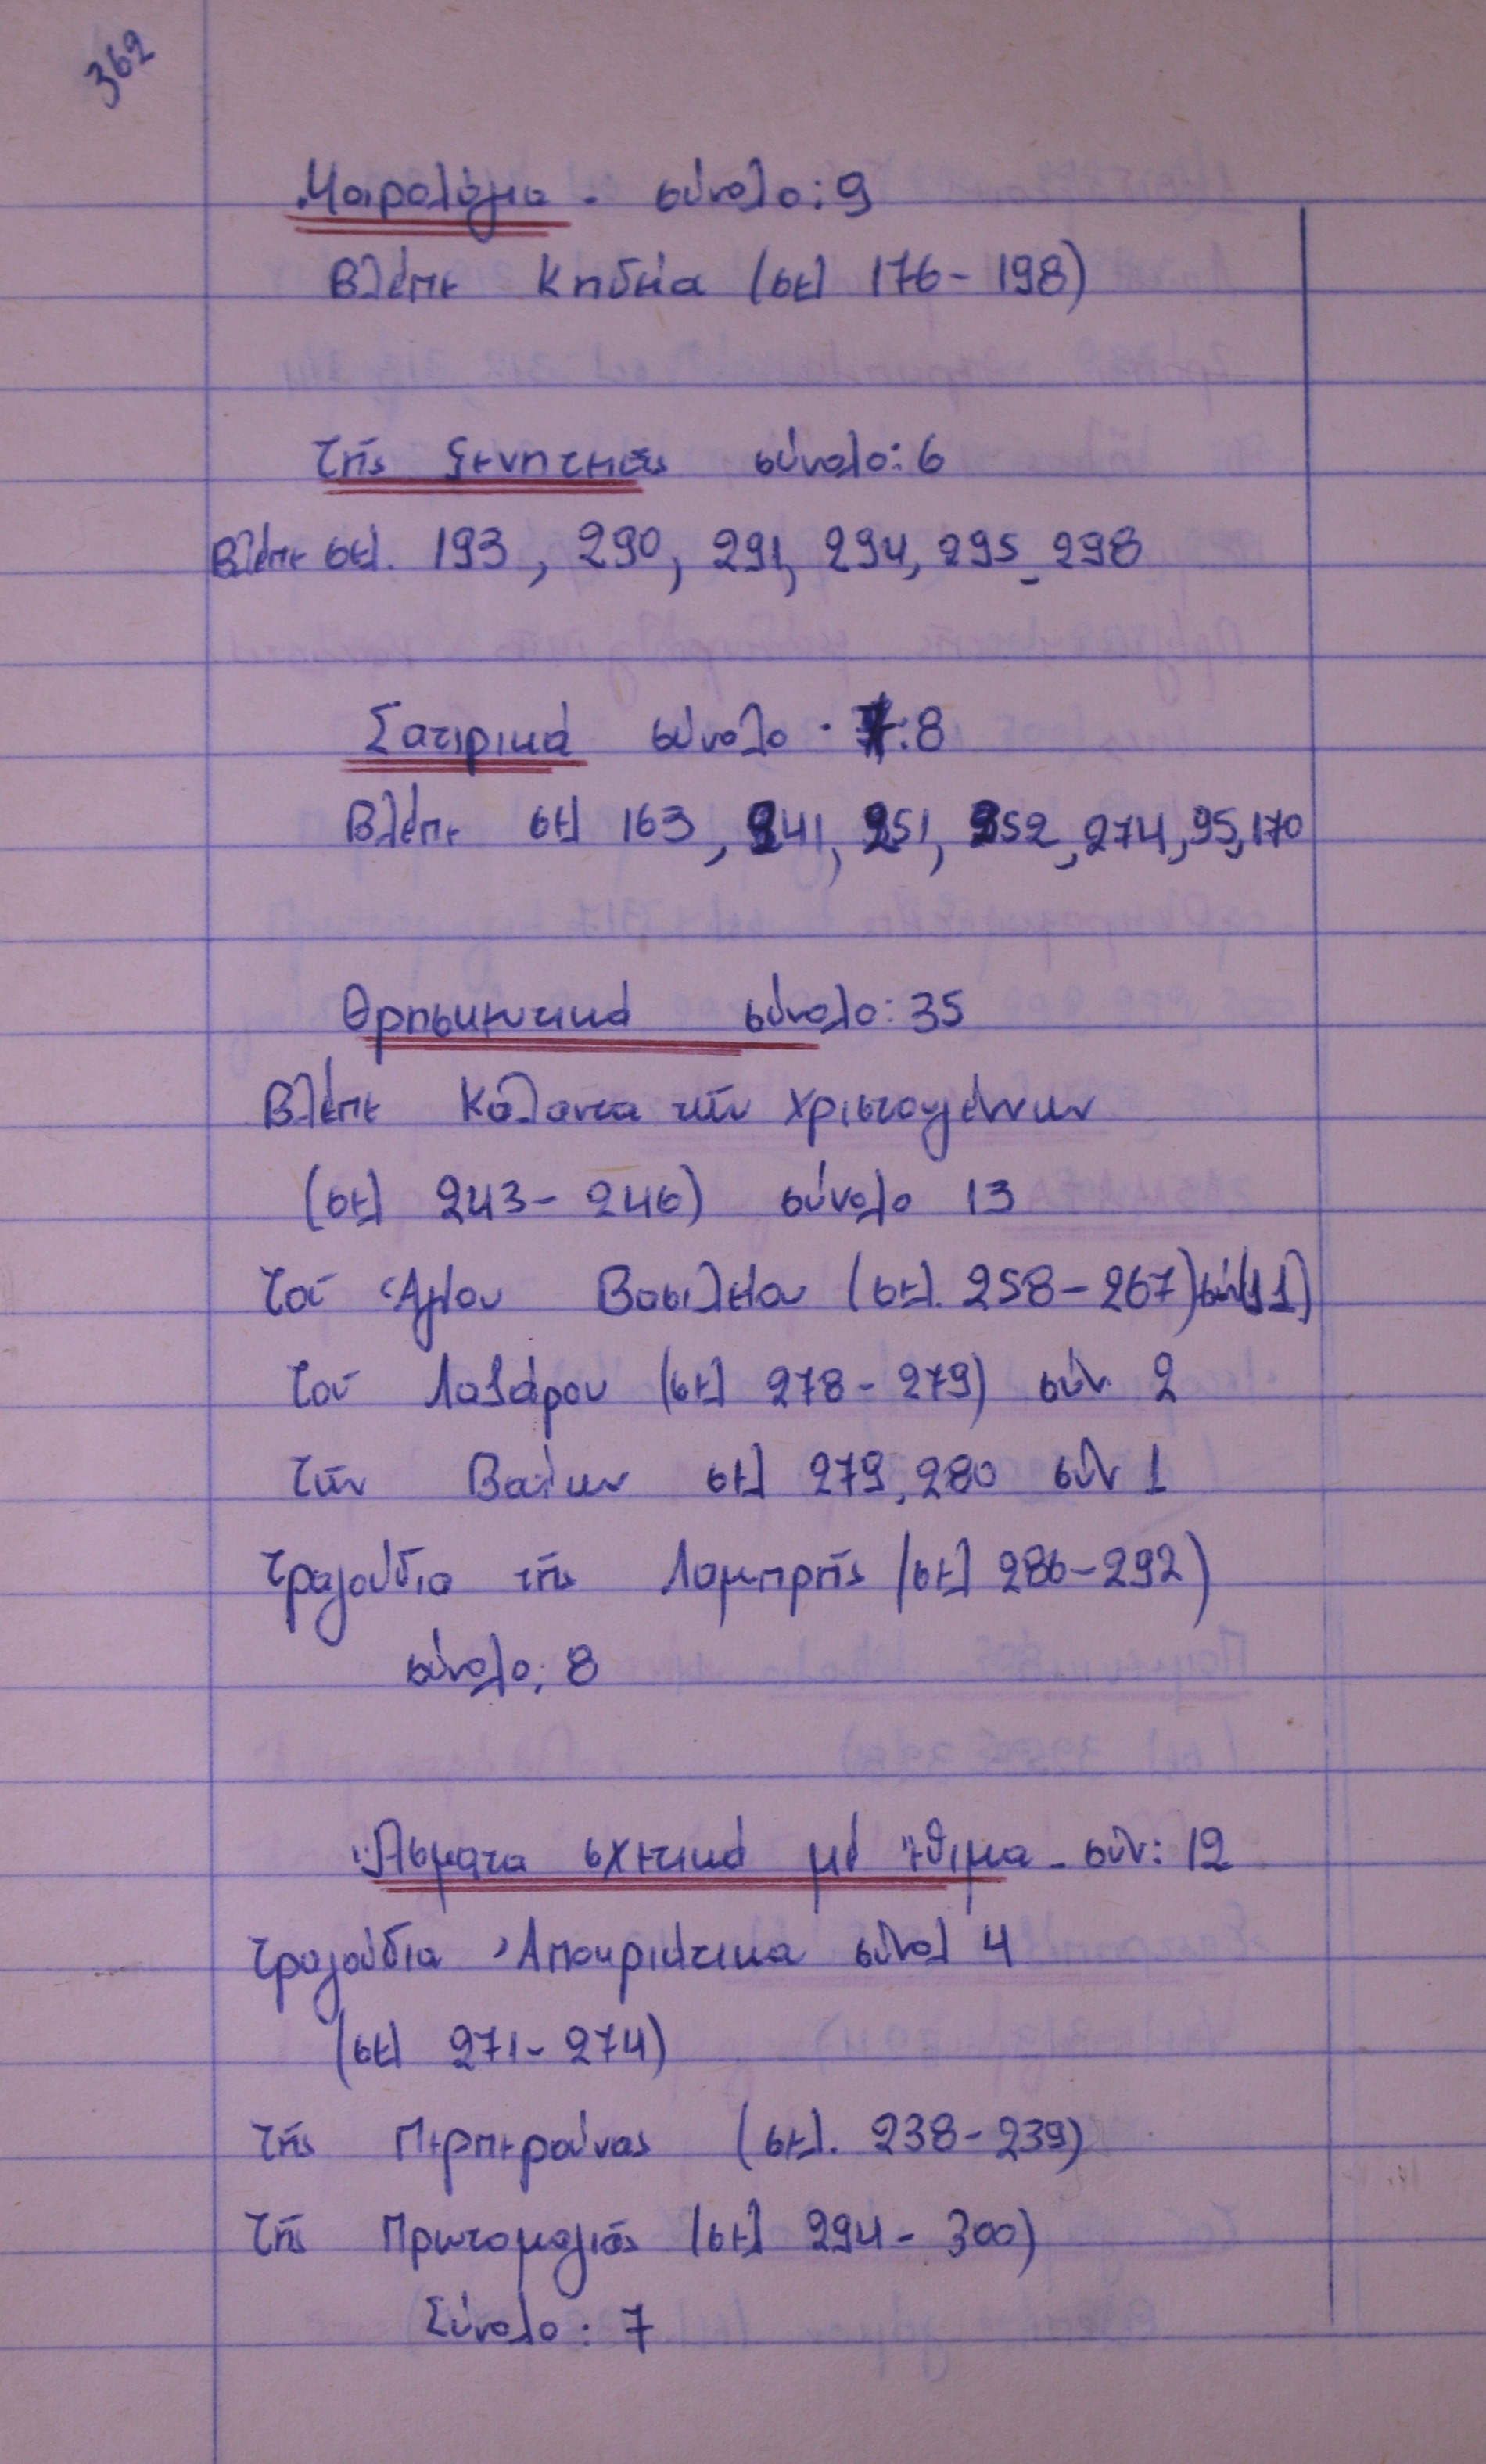 362
Μοιρολόγια - σύνολο: 9
Βλέπε Κηδεία (σελ 176 - 198)
Τῆς ξενητειᾶς σύνολο: 6
Βλέπε σελ. 193, 290, 291, 294, 295, 298
Σατιρικά σύνολο · : 8
Βλέπε σελ 163, 241, 251, 252, 274, 95, 170
Θρησκευτικά σύνολο: 35
Βλέπε Κάλαντα τῶν Χριστουγέννων
(σελ 243 - 246) σύνολο 13
Τοῦ Ἁγίου Βασιλείου (σελ. 258 - 267) σύν (11)
Τοῦ Λαζάρου (σελ 278 - 279) σύν. 2
Τῶν Βαΐων σελ 279, 280 σύν 1
Τραγούδια τῆς Λαμπρῆς (σελ 286 - 292)
σύνολο: 8
Ἄσματα σχετικά μέ ἔθιμα - σύν: 12
Τραγούδια Ἀποκριάτικα σύνολ 4
(σελ 271 - 274)
Τῆς Περπερούνας (σελ. 238 - 239)
Τῆς Πρωτομαγιᾶς (σελ 294 - 300)
Σύνολο: 7